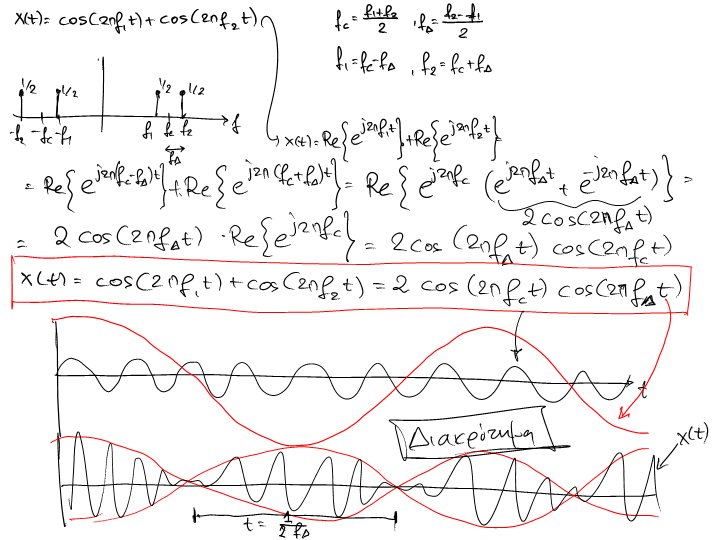 x(t) = cos(2πf₁t) + cos(2πf₂t)
f_c = (f₁+f₂)/2 , f_Δ = (f₂-f₁)/2
f₁ = f_c - f_Δ , f₂ = f_c + f_Δ
1/2 1/2 1/2 1/2
-f₂ -f_c -f₁ f₁ f_c f₂ f
f_Δ
x(t) = Re{e^{j2πf₁t}} + Re{e^{j2πf₂t}} =
= Re{e^{j2π(f_c-f_Δ)t}} + Re{e^{j2π(f_c+f_Δ)t}} = Re{e^{j2πf_c} (e^{j2πf_Δt} + e^{-j2πf_Δt})} =
2cos(2πf_Δt)
= 2cos(2πf_Δt) · Re{e^{j2πf_c}} = 2cos(2πf_Δt) cos(2πf_ct)
x(t) = cos(2πf₁t) + cos(2πf₂t) = 2 cos(2πf_ct) cos(2πf_Δt)
t
Διακρότημα
x(t)
t = 1/(2f_Δ)